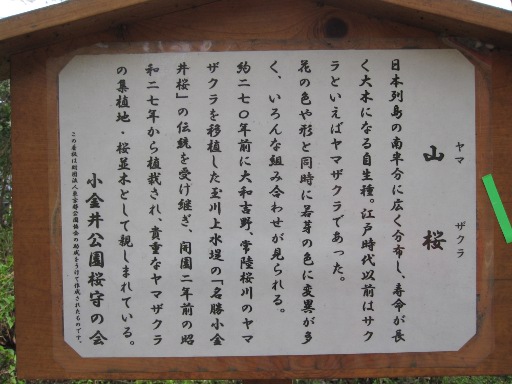 山桜
ヤマ ザクラ
日本列島の南半分に広く分布し、寿命が長
く大木になる自生種。江戸時代以前はサク
ラといえばヤマザクラであった。
花の色や形と同時に若芽の色に変異が多
く、いろんな組み合わせが見られる。
約二七〇年前に大和吉野、常陸桜川のヤマ
ザクラを移植した玉川上水堤の「名勝小金
井桜」の伝統を受け継ぎ、開園二年前の昭
和二七年から植栽され、貴重なヤマザクラ
の集植地・桜並木として親しまれている。
小金井公園桜守の会
この看板は財団法人東京都公園協会の助成をうけて作成されたものです。